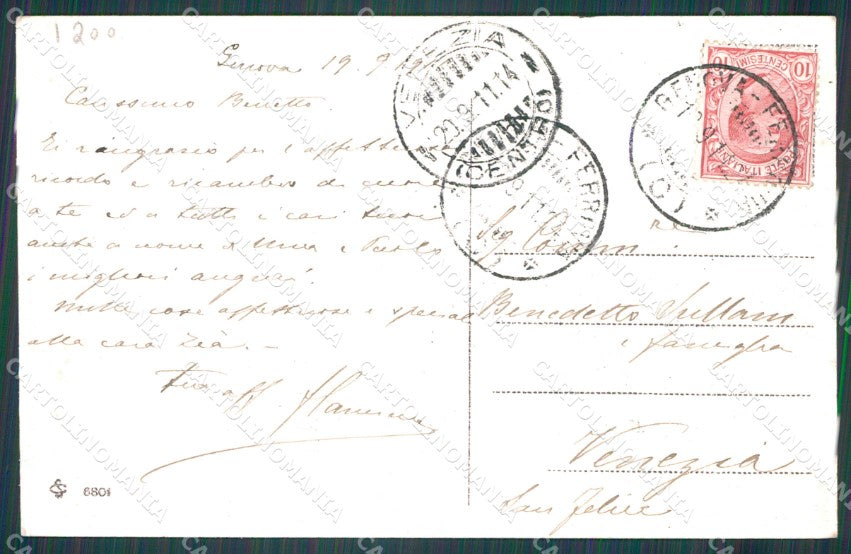 1200
Genova 19.9.19
Carissimo Benetto.
Ti ringrazio per l'affettuoso
ricordo e ricambio di cuore
a te ed a tutti i cari tuoi
anche a nome di Anna e Paolo
i migliori auguri.
Mille cose affettuose e speciali
alla cara zia. -
Tuo aff.
Sig. Comm.
Benedetto Sullam
e famiglia
Venezia
San Felice
VENEZIA
20.9.11.14
CENTRO
GENOVA - FERROVIA
FERROVIA
10 CENTESIMI 10
POSTE ITALIANE
6804
CARTOLINOMANIA